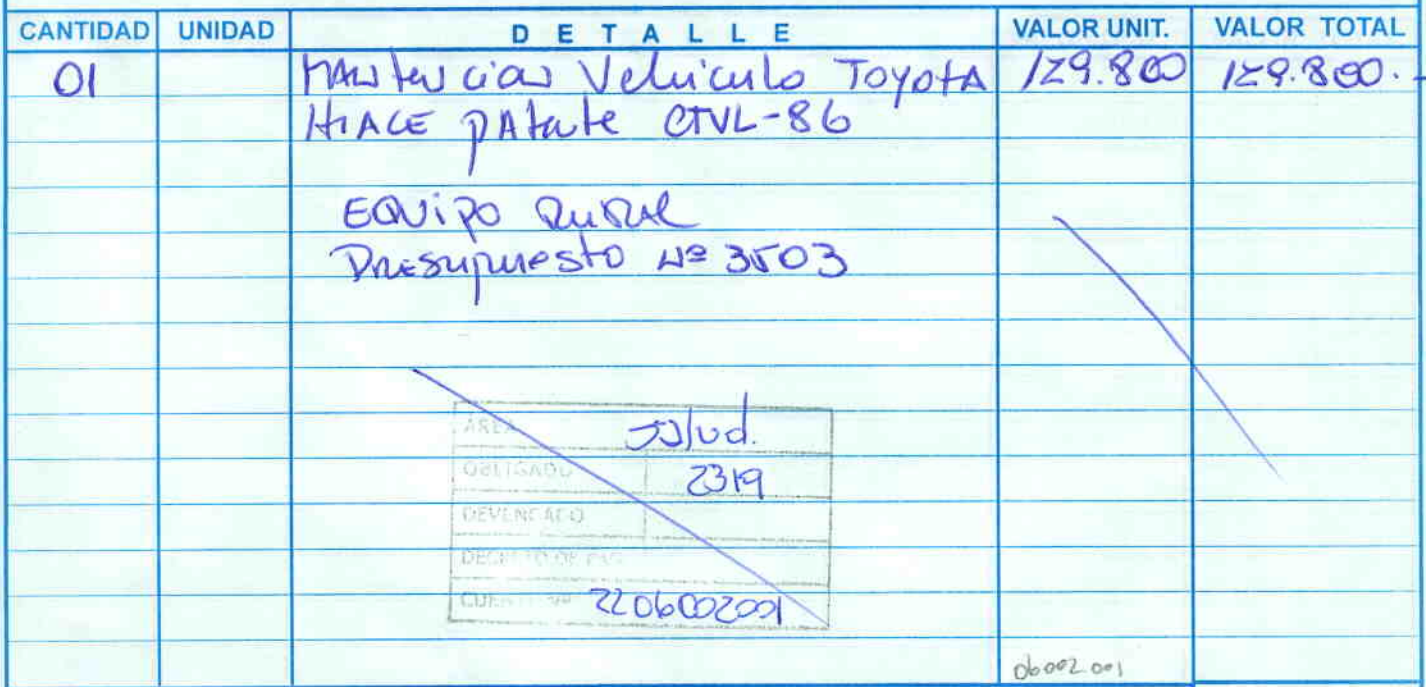 CANTIDAD UNIDAD DETALLE VALOR UNIT. VALOR TOTAL
01 MANtencion Vehiculo TOYOTA 129.800 129.800.-
HIACE pAtente CTVL-86
EQUIPO RURAL
Presupuesto Nº 3503
AREA Salud.
OBLIGADO 2319
DEVENGADO
DECRETO DE
2206002001
06002.001